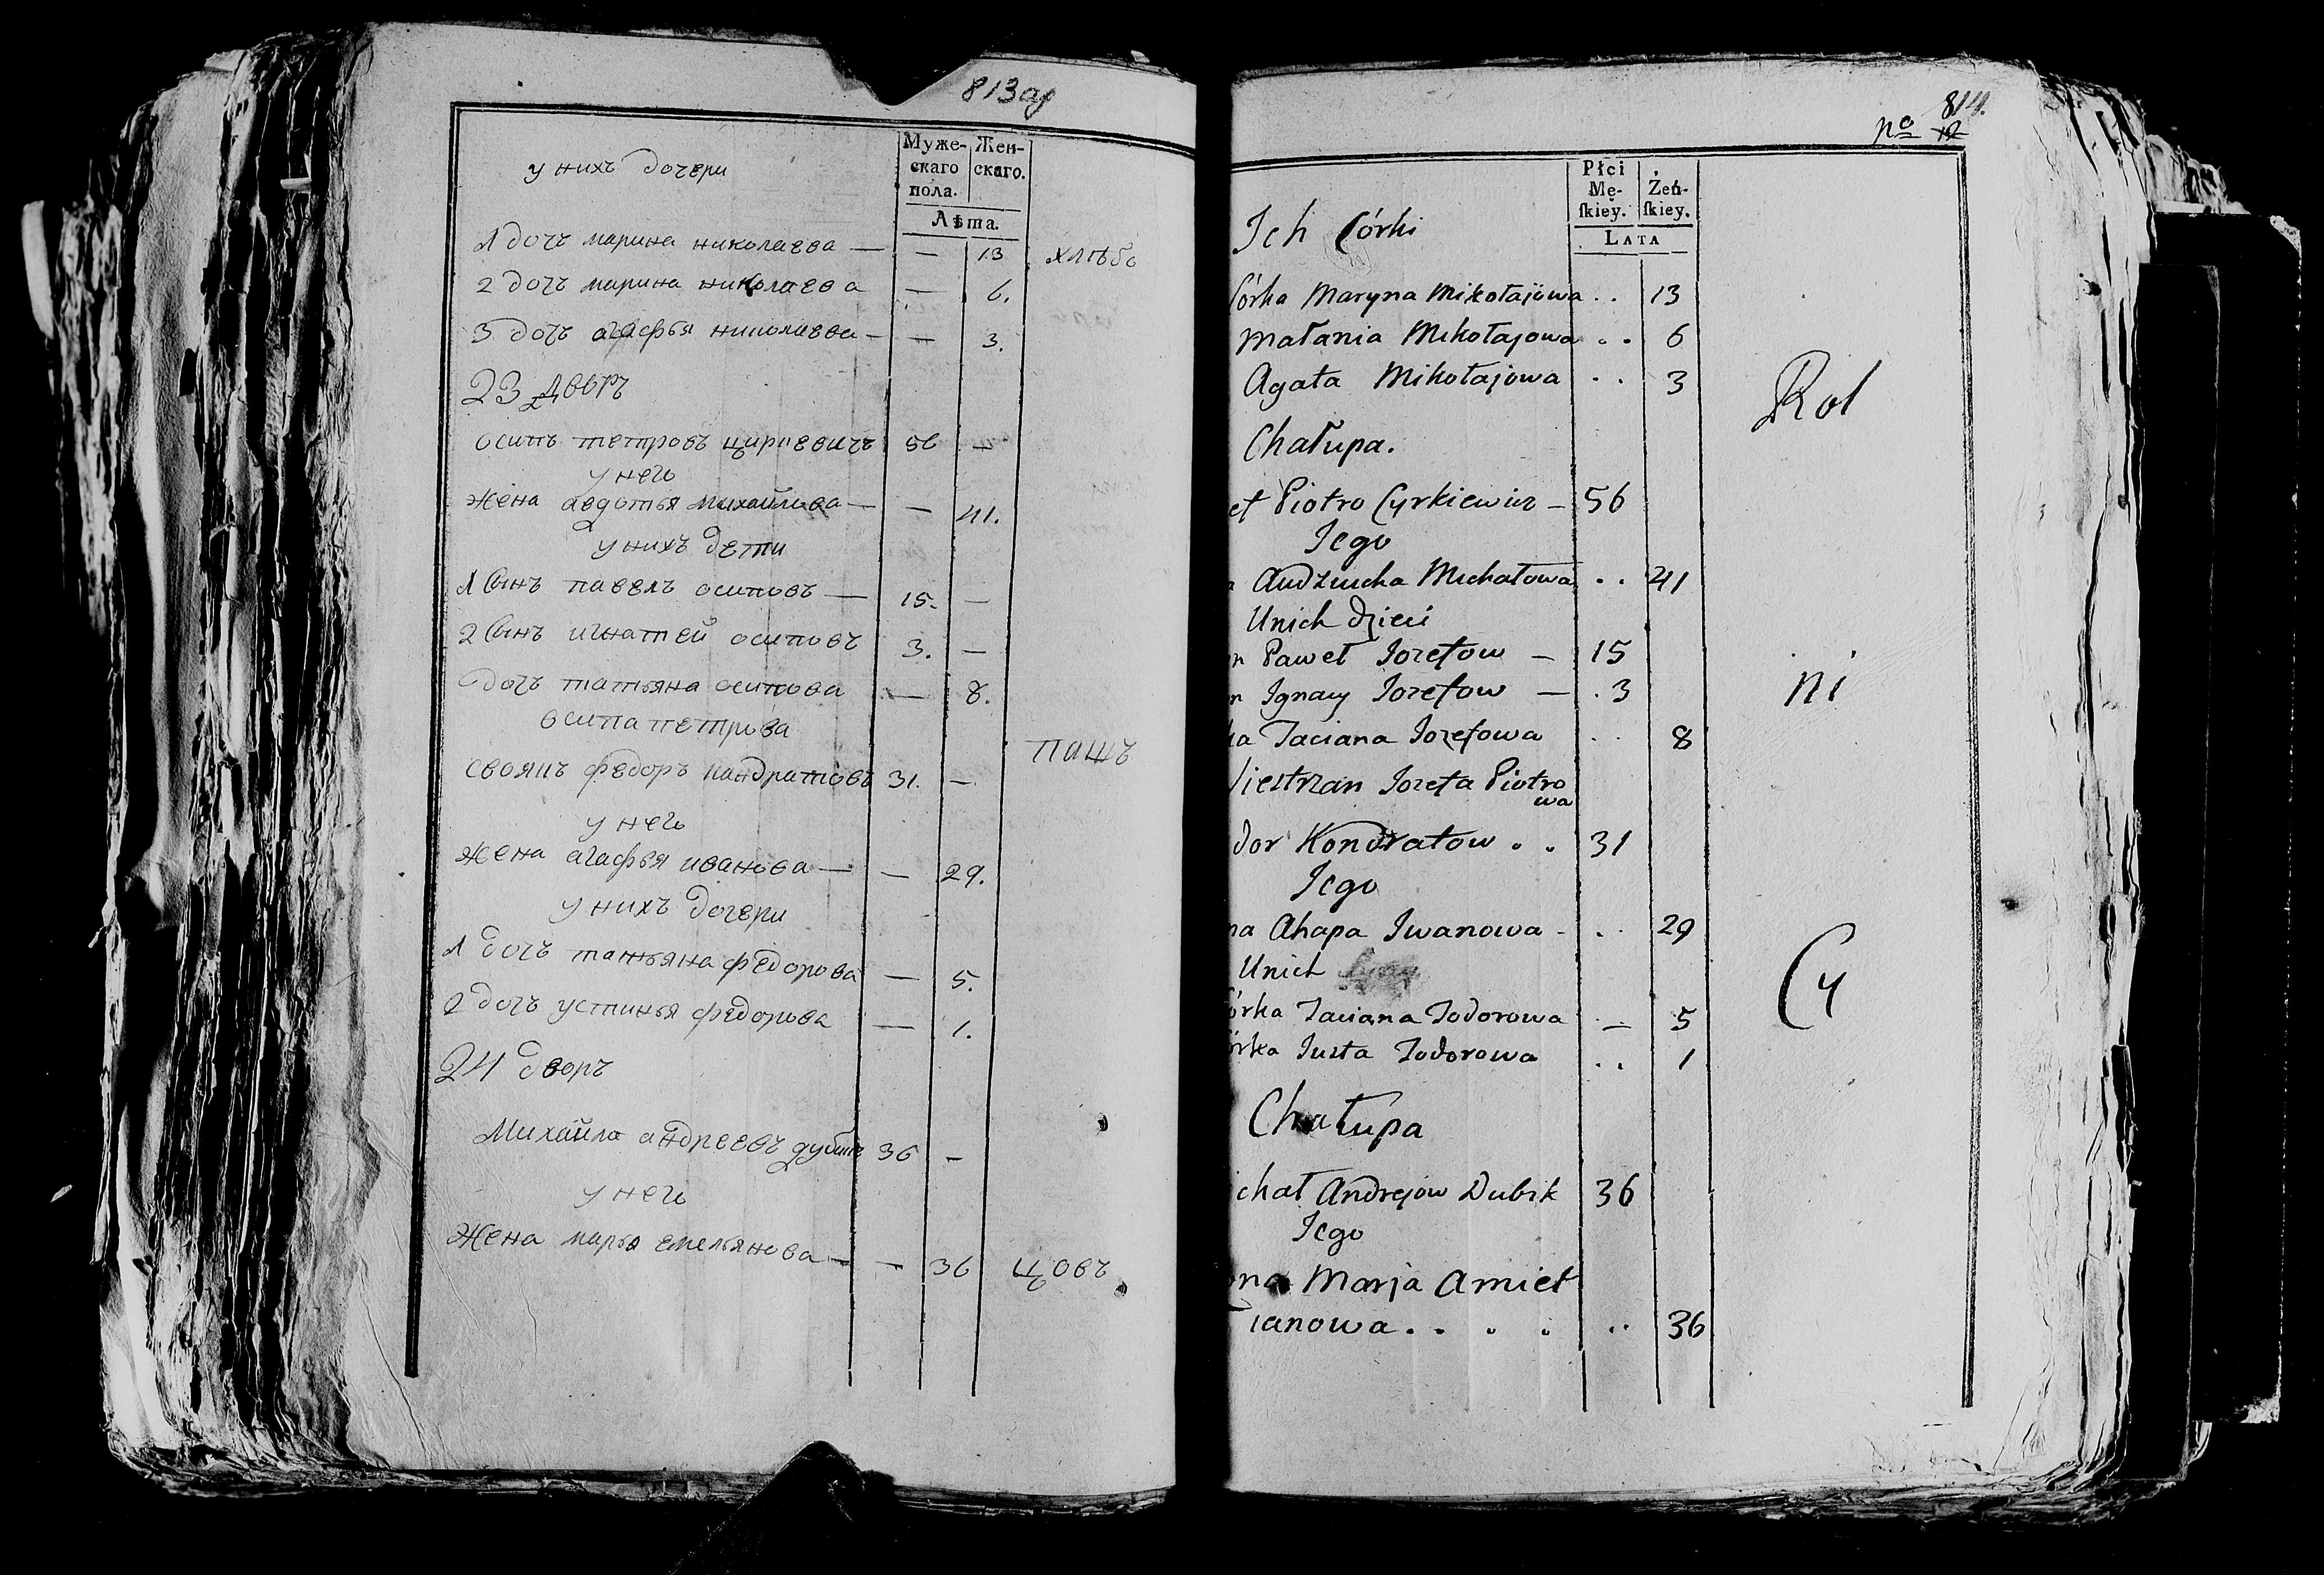 813 об
у нихъ дочери
Муже-
скаго
пола.
Жен-
скаго.
Лѣта.
1 дочъ марина николаева — — 13 хлѣбо
2 дочъ марина николаева — 6.
3 дочъ агафья николаева — — 3.
23 дворъ
осипъ петровъ циркевичъ 56 —
у него
жена авдотья михайлова — — 41.
у нихъ дети
1 сынъ павелъ осиповъ — 15. —
2 сынъ игнатей осиповъ 3. —
дочъ татьяна осипова — 8.
осипа петрова
пашъ
своякъ федоръ кандратовъ 31. —
у него
жена агафья иванова — — 29.
у нихъ дочери
1 дочъ татьяна федорова — 5.
2 дочъ устинья федорова — 1.
24 дворъ
Михайло андреевъ дубикъ 36 —
у него
жена марья емельянова — — 36 цовъ
814.
no 12
Ich Córki
Płci
Mę-
skiey.
Żeń-
skiey.
LATA
Córka Maryna Mikołajowa . . 13
Małania Mikołajowa . . 6
Agata Mikołajowa . . 3
Rol
Chałupa.
ef Piotro Cyrkiewicz — 56
Jego
a Audziucha Michałowa . . 41
Unich dzieci
n Paweł Jozefow — 15
ni
n Ignacy Jozefow — . 3
ka Taciana Jozefowa . . 8
Siestrzan Jozefa Piotro
wa
dor Kondratow . . 31
Jego
na Ahapa Iwanowa - . . 29
Unich
Cy
órka Taciana Todorowa — 5
órka Justa Todorowa . . 1
Chałupa
chał Andrejow Dubik 36
Jego
ona Marja Amieł
ianowa . . . . . . 36